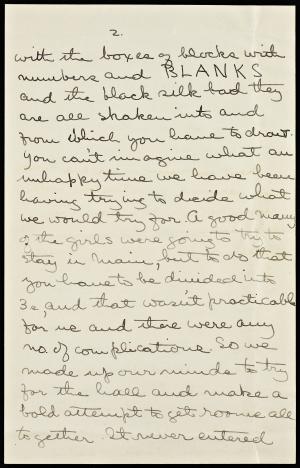 2.
with the boxes of blocks with
numbers and BLANKS
and the black silk bad they
are all shaken into and
from which you have to draw.
You can't imagine what an
unhappy time we have been
having trying to decide what
we would try for. A good many
of the girls were going to try to
stay in Main, but to do that
you have to be divided into
3s, and that wasn't practicable
for us and there were any
no. of complications. So we
made up our minds to try
for the hall and make a
bold attempt to get rooms all
together. It never entered